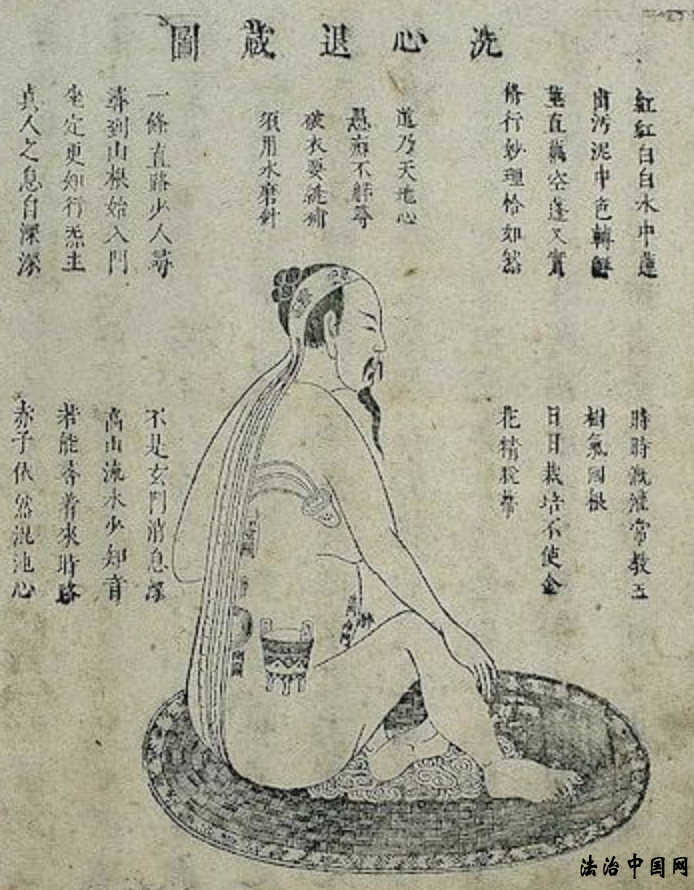 洗心退藏圖
紅紅白白水中蓮
出汚泥中色轉鮮
莖直藕空蓬又實
修行妙理恰如然
道乃天地心
愚癡不解尋
破衣要線補
須用水磨針
一條直路少人尋
尋到山根始入門
坐定更知行炁主
真人之息自深深
時時漑灌常教玉
樹氣囘根
日日栽培不使金
花精脱蒂
不是玄門消息深
高山流水少知音
若能尋着來時路
赤子依然混沌心
法治中国网